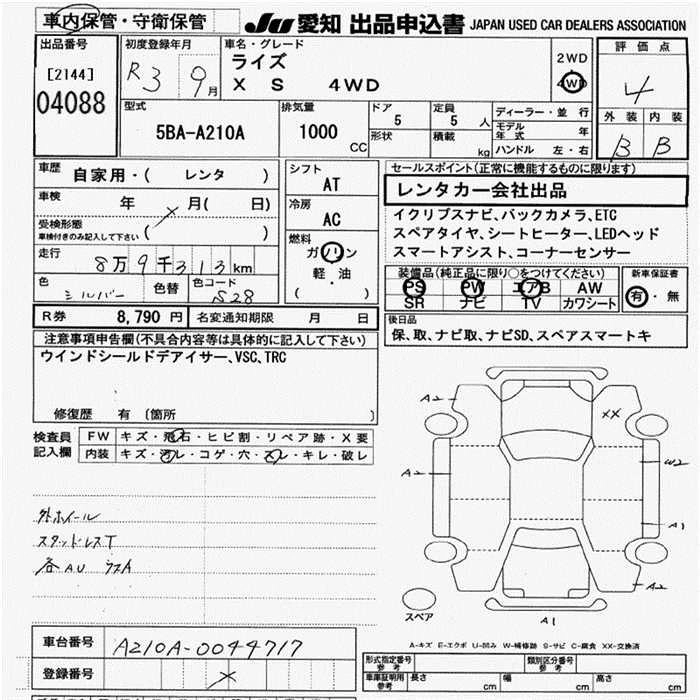 車内保管・守衛保管
JU 愛知 出品申込書 JAPAN USED CAR DEALERS ASSOCIATION
出品番号
[2144]
04088
初度登録年月
R3 9月
車名・グレード
ライズ
X S 4WD
2WD
4WD
評価点
4
外装 内装
B B
型式
5BA-A210A
排気量
1000
CC
ドア
5
形状
定員
5 人
積載
kg
ディーラー・並行
モデル年式 年
ハンドル 左・右
車歴
自家用・( レンタ )
車検
年 月( 日)
受検形態
車検付きのみ記入して下さい ( )
走行
8万9千313km
色
シルバー
色替
色コード
S28
シフト
AT
冷房
AC
燃料
ガソリン
軽・油
( )
セールスポイント(正常に機能するものに限ります)
レンタカー会社出品
イクリプスナビ、バックカメラ、ETC
スペアタイヤ、シートヒーター、LEDヘッド
スマートアシスト、コーナーセンサー
装備品(純正品に限り○をつけてください)
PS PW エアB AW
SR ナビ TV カワシート
新車保証書
有・無
R券 8,790 円
名変通知期限 月 日
後日品
保、取、ナビ取、ナビSD、スペアスマートキ
注意事項申告欄(不具合内容等は具体的に記入して下さい)
ウインドシールドデアイサー、VSC、TRC
修復歴 有 〔箇所 〕
検査員
記入欄
FW キズ・飛石・ヒビ割・リペア跡・X要
内装 キズ・汚レ・コゲ・穴・スレ・キレ・破レ
外ホイール
スタッドレスT
各AU
A2
XX
A2
W2
A1
A2
スペア
A1
A-キズ E-エクボ U-凹み W-補修跡 S-サビ C-腐食 XX-交換済
車台番号
A210A-0044717
登録番号
形式指定番号
参考
類別区分番号
参考
車庫証明用
参考
長さ cm
幅 cm
高さ cm